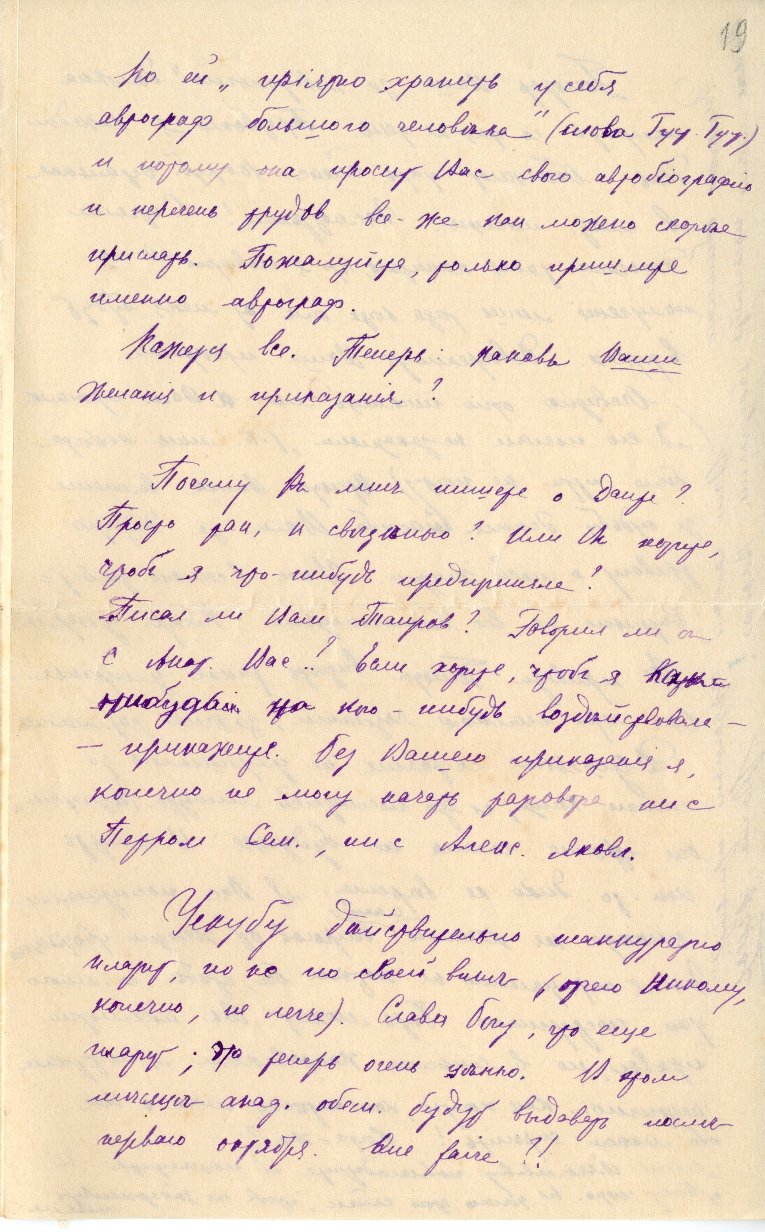 19
Но ей „пріятно хранить у себя
автограф большого человѣка" (слова Гуг. Гуг.)
и потому она просит Вас свою автобіографію
и перечень трудов все-же как можно скорѣе
прислать. Пожалуйста, только пришлите
именно автограф.
Кажется все. Теперь: каковы Ваши
желанія и приказанія?
Почему Вы мнѣ пишете о Данте?
Просто так, к свѣдѣнію? Или Вы хотите,
чтобы я что-нибудь предприняла?
Писал ли Вам Таиров? Говорил ли он
с Анат. Вас.? Если хотите, чтобы я
на кого-нибудь воздѣйствовала —
— прикажите. Без Вашего приказанія я,
конечно не могу начать разговора ни с
Петром Сем., ни с Алекс. Яковл.
Цекубу дѣйствительно неаккуратно
платит, но не по своей винѣ (от чего никому,
конечно, не легче). Слава Богу, что еще
платит; это теперь очень цѣнно. В этом
мѣсяцѣ акад. обезп. будут выдавать послѣ
первого октября. Que faire?!